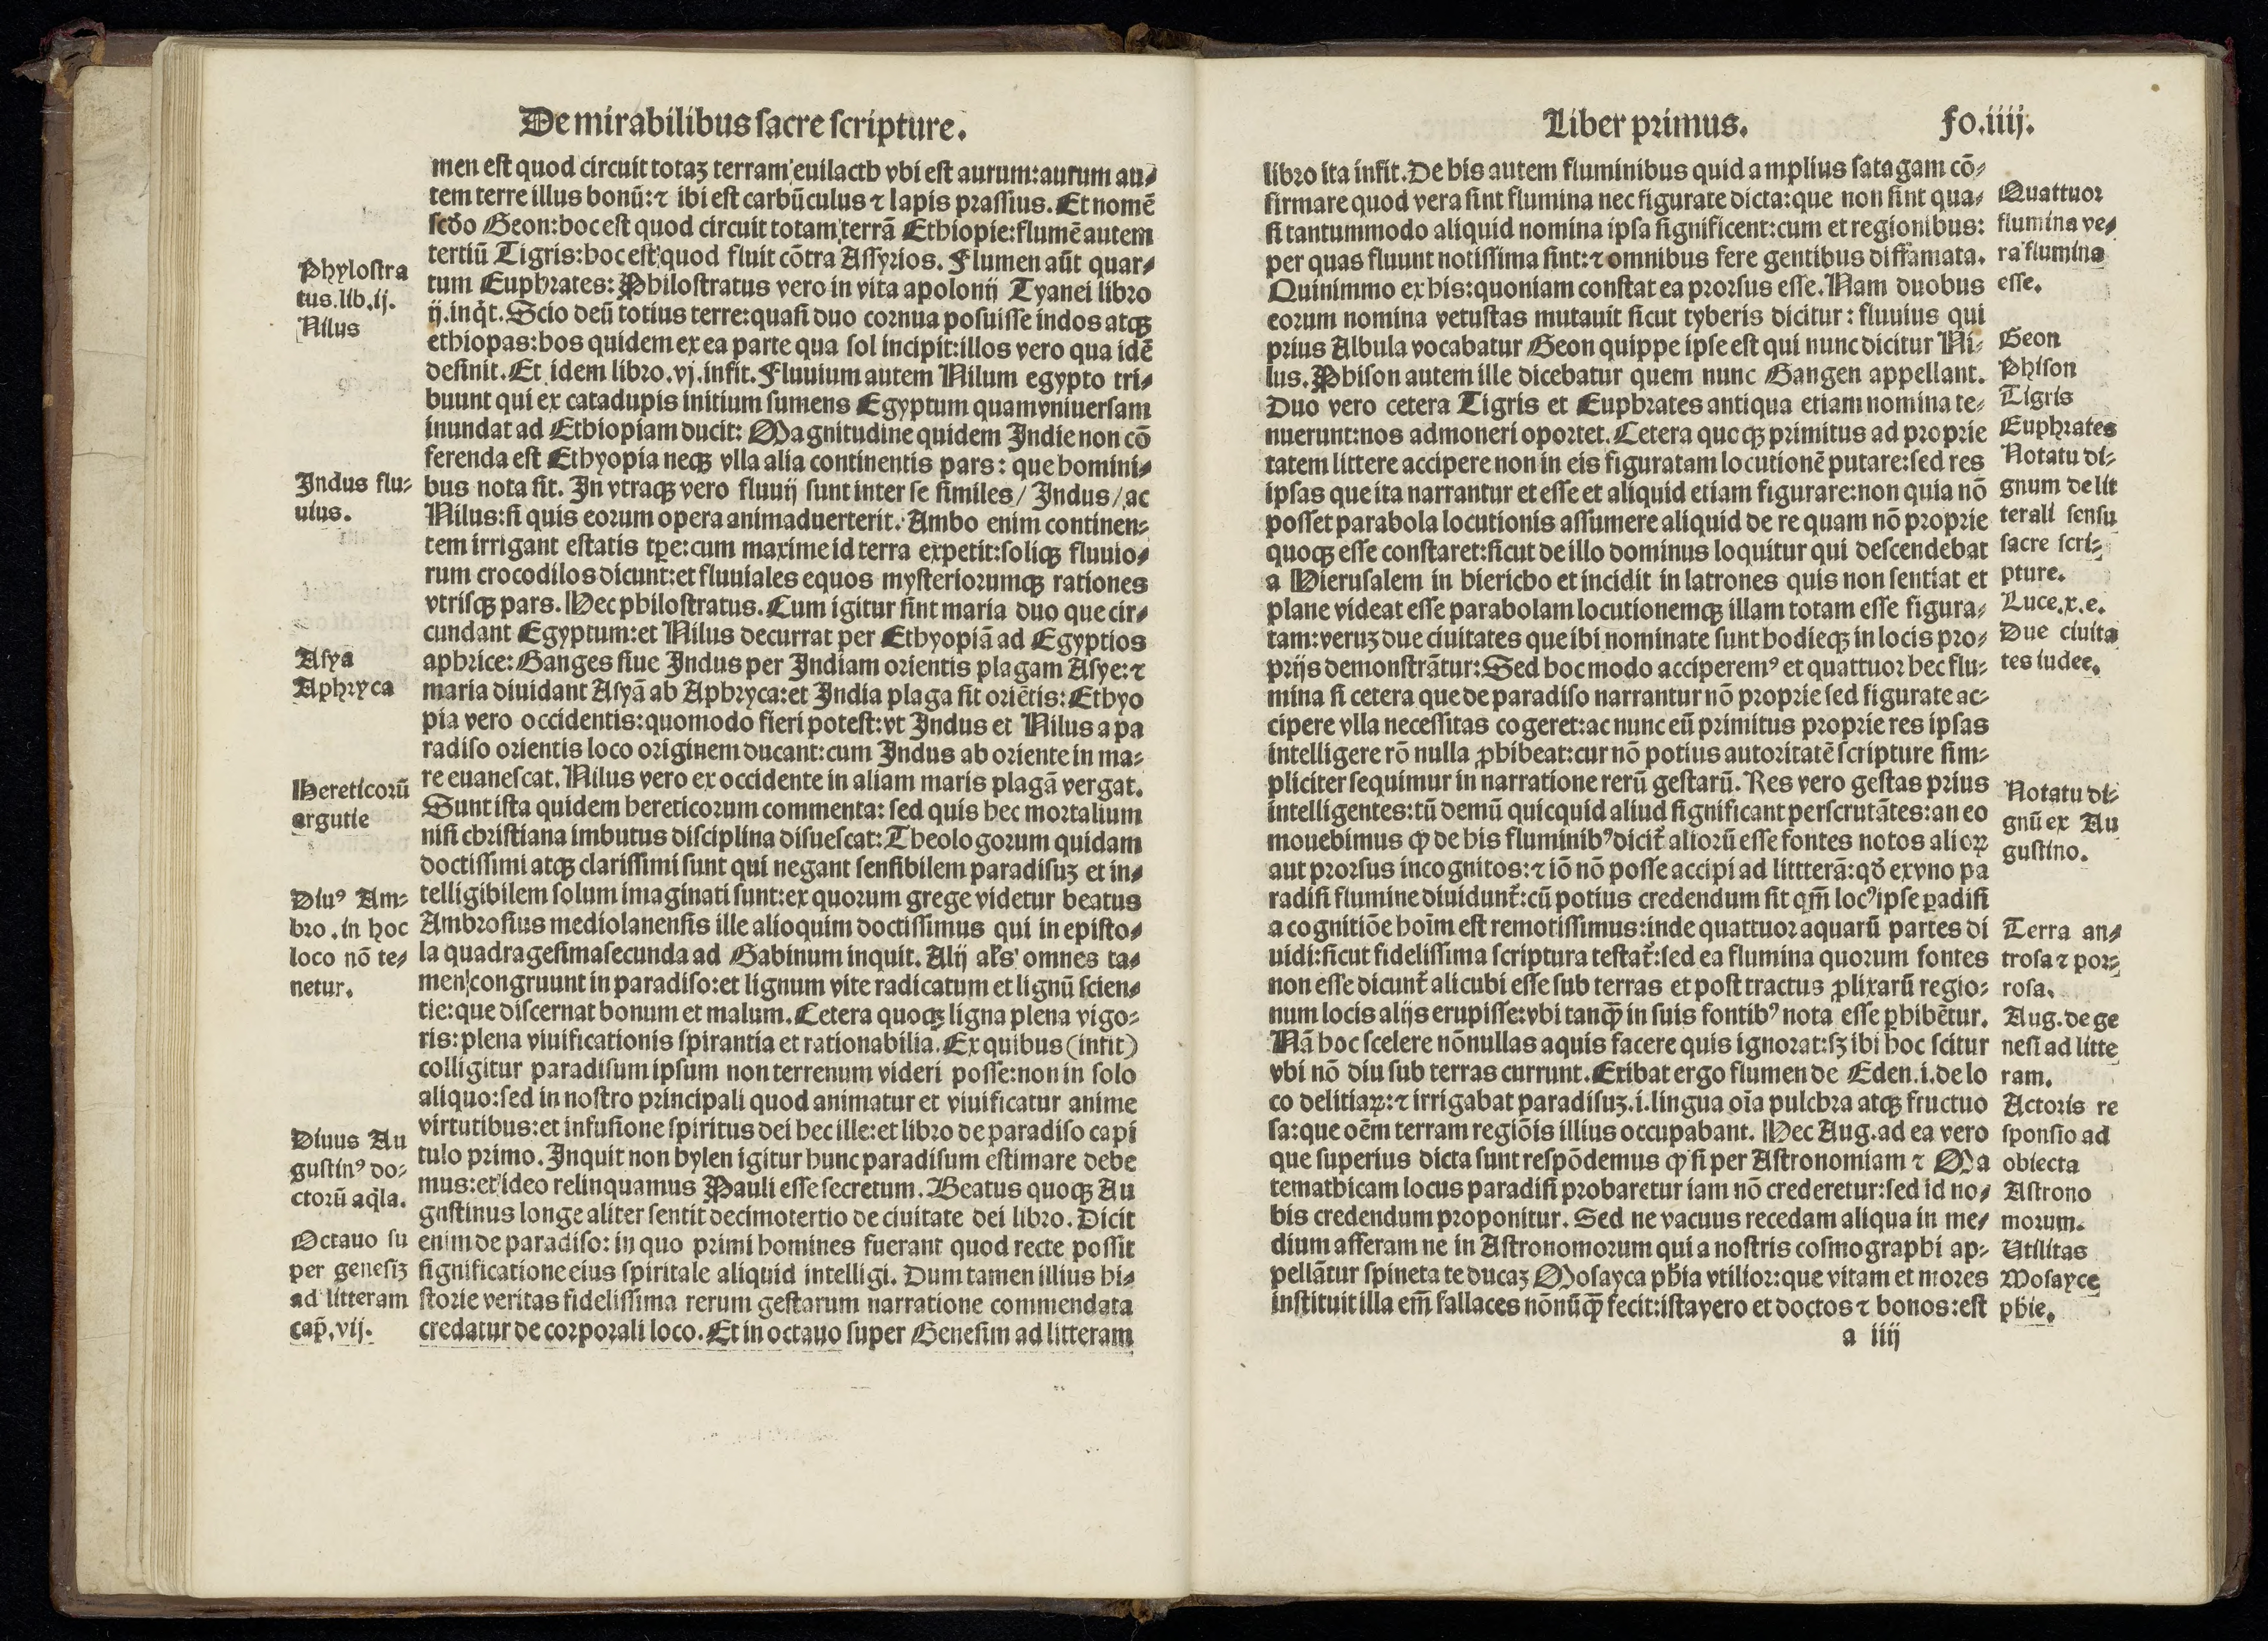 De mirabilibus sacre scripture.
men est quod circuit totaʒ terram euilacth vbi est aurum: aurum au⸗
tem terre illus bonū: ⁊ ibi est carbūculus ⁊ lapis prassius. Et nomē
scd̄o Geon: hoc est quod circuit totam terrā Ethiopie: flumē autem
tertiū Tigris: hoc est quod fluit cōtra Assyrios. Flumen aūt quar⸗
tum Euphrates: Philostratus vero in vita apolonij Tyanei libro
ij. inq̄t. Scio deū totius terre: quasi duo cornua posuisse indos atqꝫ
ethiopas: hos quidem ex ea parte qua sol incipit: illos vero qua idē
desinit. Et idem libro. vj. infit. Fluuium autem Nilum egypto tri⸗
buunt qui ex catadupis initium sumens Egyptum quam vniuersam
inundat ad Ethiopiam ducit: Magnitudine quidem Indie non cō
ferenda est Ethyopia neqꝫ vlla alia continentis pars: que homini⸗
bus nota sit. In vtraqꝫ vero fluuij sunt inter se similes / Indus / ac
Nilus: si quis eorum opera animaduerterit. Ambo enim continen⸗
tem irrigant estatis tp̄e: cum maxime id terra expetit: soliqꝫ fluuio⸗
rum crocodilos dicunt: et fluuiales equos mysteriorumqꝫ rationes
vtrisqꝫ pars. Hec philostratus. Cum igitur sint maria duo que cir⸗
cundant Egyptum: et Nilus decurrat per Ethyopiā ad Egyptios
aphrice: Ganges siue Indus per Indiam orientis plagam Asye: ⁊
maria diuidant Asyā ab Aphryca: et India plaga sit oriētis: Ethyo
pia vero occidentis: quomodo fieri potest: vt Indus et Nilus a pa
radiso orientis loco originem ducant: cum Indus ab oriente in ma⸗
re euanescat. Nilus vero ex occidente in aliam maris plagā vergat.
Sunt ista quidem hereticorum commenta: sed quis hec mortalium
nisi christiana imbutus disciplina disuescat: Theologorum quidam
doctissimi atqꝫ clarissimi sunt qui negant sensibilem paradisuʒ et in⸗
telligibilem solum imaginati sunt: ex quorum grege videtur beatus
Ambrosius mediolanensis ille alioquim doctissimus qui in episto⸗
la quadragesimasecunda ad Gabinum inquit. Alij al's omnes ta⸗
men congruunt in paradiso: et lignum vite radicatum et lignū scien⸗
tie: que discernat bonum et malum. Cetera quoqꝫ ligna plena vigo⸗
ris: plena viuificationis spirantia et rationabilia. Ex quibus (infit)
colligitur paradisum ipsum non terrenum videri posse: non in solo
aliquo: sed in nostro principali quod animatur et viuificatur anime
virtutibus: et infusione spiritus dei hec ille: et libro de paradiso capi
tulo primo. Inquit non hylen igitur hunc paradisum estimare debe
mus: et ideo relinquamus Pauli esse secretum. Beatus quoqꝫ Au
gustinus longe aliter sentit decimotertio de ciuitate dei libro. Dicit
enim de paradiso: in quo primi homines fuerant quod recte possit
significatione eius spiritale aliquid intelligi. Dum tamen illius hi⸗
storie veritas fidelissima rerum gestarum narratione commendata
credatur de corporali loco. Et in octauo super Genesim ad litteram
Phylostra
tus. lib. ij.
Nilus
Indus flu⸗
uius.
Asya
Aphryca
Hereticorū
argutie
Diuꝰ Am⸗
bro. in hoc
loco nō te⸗
netur.
Diuus Au
gustinꝰ do⸗
ctorū aq̄la.
Octauo su
per genesiʒ
ad litteram
cap̄. vij.
Liber primus.
fo. iiij.
libro ita infit. De his autem fluminibus quid amplius satagam cō⸗
firmare quod vera sint flumina nec figurate dicta: que non sint qua⸗
si tantummodo aliquid nomina ipsa significent: cum et regionibus:
per quas fluunt notissima sint: ⁊ omnibus fere gentibus diffamata.
Quinimmo ex his: quoniam constat ea prorsus esse. Nam duobus
eorum nomina vetustas mutauit sicut tyberis dicitur: fluuius qui
prius Albula vocabatur Geon quippe ipse est qui nunc dicitur Ni⸗
lus. Phison autem ille dicebatur quem nunc Gangen appellant.
Duo vero cetera Tigris et Euphrates antiqua etiam nomina te⸗
nuerunt: nos admoneri oportet. Cetera quoqꝫ primitus ad proprie
tatem littere accipere non in eis figuratam locutionē putare: sed res
ipsas que ita narrantur et esse et aliquid etiam figurare: non quia nō
posset parabola locutionis assumere aliquid de re quam nō proprie
quoqꝫ esse constaret: sicut de illo dominus loquitur qui descendebat
a Hierusalem in hiericho et incidit in latrones quis non sentiat et
plane videat esse parabolam locutionemqꝫ illam totam esse figura⸗
tam: veruʒ due ciuitates que ibi nominate sunt hodieqꝫ in locis pro⸗
prijs demonstrātur: Sed hoc modo acciperemꝰ et quattuor hec flu⸗
mina si cetera que de paradiso narrantur nō proprie sed figurate ac⸗
cipere vlla necessitas cogeret: ac nunc eū primitus proprie res ipsas
intelligere rō nulla ꝓhibeat: cur nō potius autoritatē scripture sim⸗
pliciter sequimur in narratione rerū gestarū. Res vero gestas prius
intelligentes: tū demū quicquid aliud significant perscrutātes: an eo
mouebimus ꝙ de his fluminibꝰ dicit̄ aliorū esse fontes notos alioꝝ
aut prorsus incognitos: ⁊ iō nō posse accipi ad littterā: qd̄ ex vno pa
radisi flumine diuidunt̄: cū potius credendum sit qm̄ locꝰ ipse ꝑadisi
a cognitiōe hoīm est remotissimus: inde quattuor aquarū partes di
uidi: sicut fidelissima scriptura testat̄: sed ea flumina quorum fontes
non esse dicunt̄ alicubi esse sub terras et post tractus ꝓlixarū regio⸗
num locis alijs erupisse: vbi tanꝙ̄ in suis fontibꝰ nota esse ꝑhibētur.
Nā hoc scelere nōnullas aquis facere quis ignorat: sʒ ibi hoc scitur
vbi nō diu sub terras currunt. Exibat ergo flumen de Eden. i. de lo
co delitiaꝝ: ⁊ irrigabat paradisuʒ. i. lingua oīa pulchra atqꝫ fructuo
sa: que oēm terram regiōis illius occupabant. Hec Aug. ad ea vero
que superius dicta sunt respōdemus ꝙ si per Astronomiam ⁊ Ma
temathicam locus paradisi probaretur iam nō crederetur: sed id no⸗
bis credendum proponitur. Sed ne vacuus recedam aliqua in me⸗
dium afferam ne in Astronomorum qui a nostris cosmographi ap⸗
pellātur spineta te ducaʒ Mosayca ph̄ia vtilior: que vitam et mores
instituit illa em̄ fallaces nōnūꝙ̄ fecit: ista vero et doctos ⁊ bonos: est
a iiij
Quattuor
flumina ve⸗
ra flumina
esse.
Geon
Phison
Tigris
Euphrates
Notatu di⸗
gnum de lit
terali sensu
sacre scri⸗
pture.
Luce. x. e.
Due ciuita
tes iudee.
Notatu di⸗
gnū ex Au
gustino.
Terra an⸗
trosa ⁊ por⸗
rosa.
Aug. de ge
nesi ad litte
ram.
Actoris re
sponsio ad
obiecta
Astrono
morum.
Utilitas
Mosayce
phie.